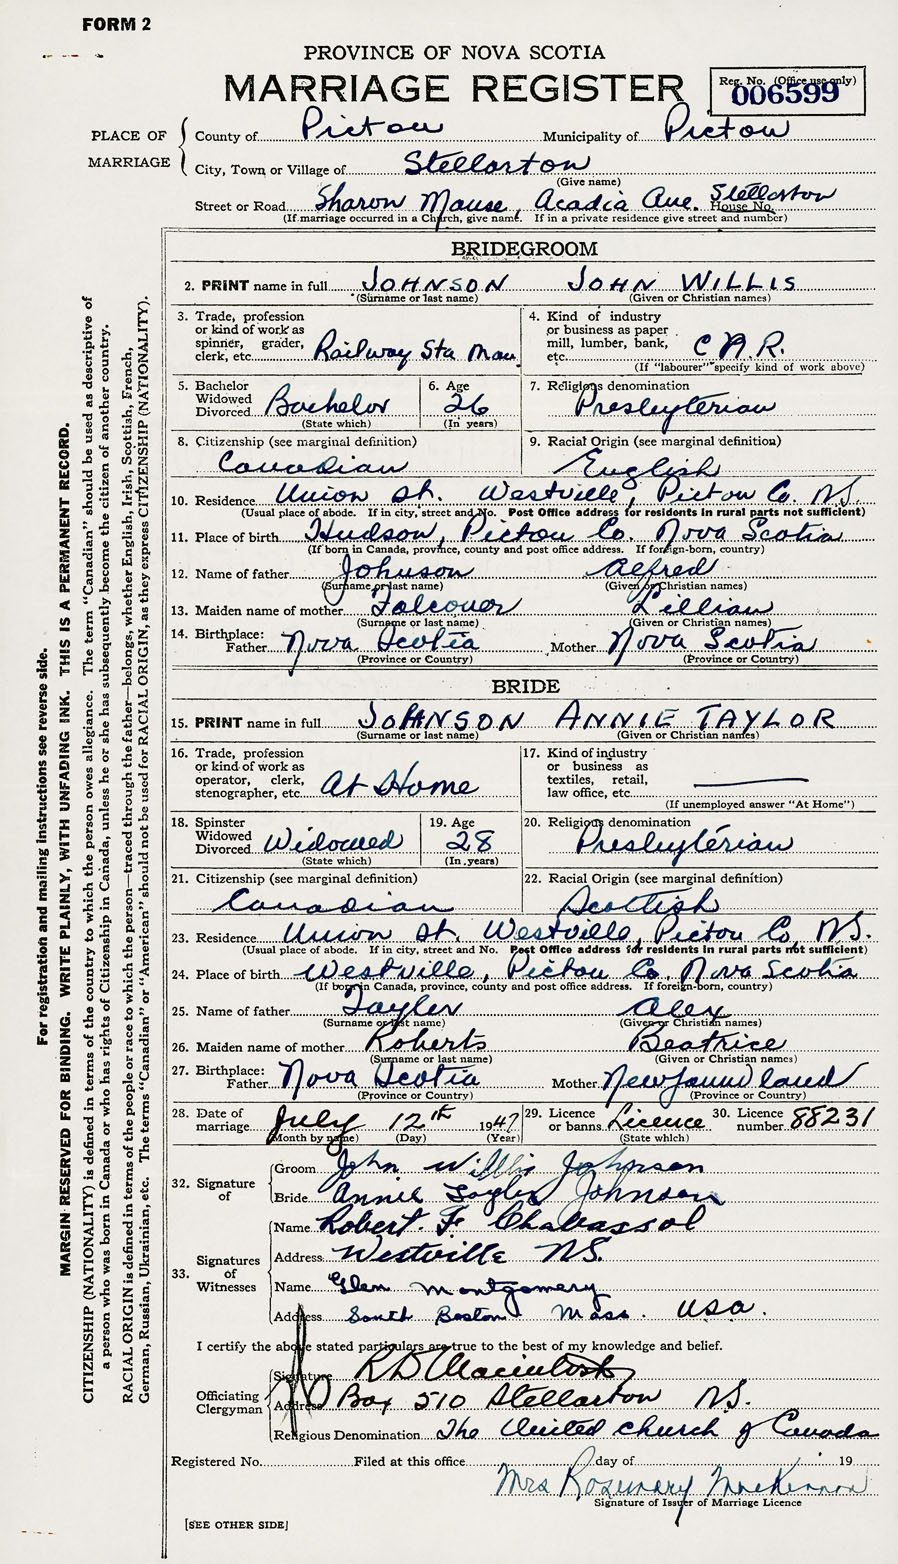 FORM 2
PROVINCE OF NOVA SCOTIA
MARRIAGE REGISTER
Reg. No. (Office use only)
006599
PLACE OF MARRIAGE
County of Pictou Municipality of Pictou
City, Town or Village of Stellarton
(Give name)
Street or Road Sharon Manse, Acadia Ave. Stellarton House No.
(If marriage occurred in a Church, give name. If in a private residence give street and number)
BRIDEGROOM
2. PRINT name in full JOHNSON JOHN WILLIS
(Surname or last name) (Given or Christian names)
3. Trade, profession or kind of work as spinner, grader, clerk, etc. Railway Sta Man
4. Kind of industry or business as paper mill, lumber, bank, etc. C N.R.
(If "labourer" specify kind of work above)
5. Bachelor Widowed Divorced Bachelor
(State which)
6. Age 26
(In years)
7. Religious denomination
Presbyterian
8. Citizenship (see marginal definition)
Canadian
9. Racial Origin (see marginal definition)
English
10. Residence Union St. Westville, Pictou Co. N.S.
(Usual place of abode. If in city, street and No. Post Office address for residents in rural parts not sufficient)
11. Place of birth Hudson, Pictou Co. Nova Scotia
(If born in Canada, province, county and post office address. If foreign-born, country)
12. Name of father Johnson Alfred
(Surname or last name) (Given or Christian names)
13. Maiden name of mother Falconer Lillian
(Surname or last name) (Given or Christian names)
14. Birthplace:
Father Nova Scotia Mother Nova Scotia
(Province or Country) (Province or Country)
BRIDE
15. PRINT name in full JOHNSON ANNIE TAYLOR
(Surname or last name) (Given or Christian names)
16. Trade, profession or kind of work as operator, clerk, stenographer, etc. At Home
17. Kind of industry or business as textiles, retail, law office, etc.
(If unemployed answer "At Home")
18. Spinster Widowed Divorced Widowed
(State which)
19. Age 28
(In years)
20. Religious denomination
Presbyterian
21. Citizenship (see marginal definition)
Canadian
22. Racial Origin (see marginal definition)
Scottish
23. Residence Union St. Westville, Pictou Co N.S.
(Usual place of abode. If in city, street and No. Post Office address for residents in rural parts not sufficient)
24. Place of birth Westville, Pictou Co. Nova Scotia
(If born in Canada, province, county and post office address. If foreign-born, country)
25. Name of father Taylor Alex
(Surname or last name) (Given or Christian names)
26. Maiden name of mother Roberts Beatrice
(Surname or last name) (Given or Christian names)
27. Birthplace:
Father Nova Scotia Mother Newfoundland
(Province or Country) (Province or Country)
28. Date of marriage July 12th 1947
(Month by name) (Day) (Year)
29. Licence or banns Licence
(State which)
30. Licence number 88231
32. Signature of
Groom John Willis Johnson
Bride Annie Taylor Johnson
33. Signatures of Witnesses
Name Robert F Chabassol
Address Westville N.S.
Name Glen Montgomery
Address South Boston Mass. USA.
I certify the above stated particulars are true to the best of my knowledge and belief.
Officiating Clergyman
Signature R D Macintosh
Address Box 510 Stellarton N.S.
Religious Denomination The United Church of Canada
Registered No. Filed at this office day of 19
Mrs Rosemary MacKinnon
Signature of Issuer of Marriage Licence
[SEE OTHER SIDE]
For registration and mailing instructions see reverse side.
MARGIN RESERVED FOR BINDING. WRITE PLAINLY, WITH UNFADING INK. THIS IS A PERMANENT RECORD.
CITIZENSHIP (NATIONALITY) is defined in terms of the country to which the person owes allegiance. The term "Canadian" should be used as descriptive of
a person who was born in Canada or who has rights of Citizenship in Canada, unless he or she has subsequently become the citizen of another country.
RACIAL ORIGIN is defined in terms of the people or race to which the person—traced through the father—belongs, whether English, Irish, Scottish, French,
German, Russian, Ukrainian, etc. The terms "Canadian" or "American" should not be used for RACIAL ORIGIN, as they express CITIZENSHIP (NATIONALITY).